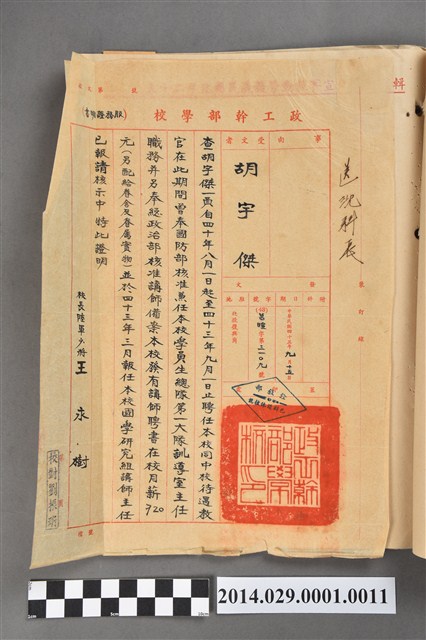 政工幹部學校(服務證明書)
事由
受文者
胡宇傑
查胡宇傑一員自四十年八月一日起至四十三年九月一日止聘任本校同中校待遇教
官在此期間曾奉國防部核准兼任本校學員生總隊第一大隊訓導室主任
職務并另奉總政治部核准講師備案本校發有講師聘書在校月薪920
元(另配給眷舍及眷屬實物)並於四十三年三月報任本校國學研究組講師主任
已報請核示中 特此證明
校長陸軍少將王永樹
九月十五日
政工幹部學校印
2014.029.0001.0011